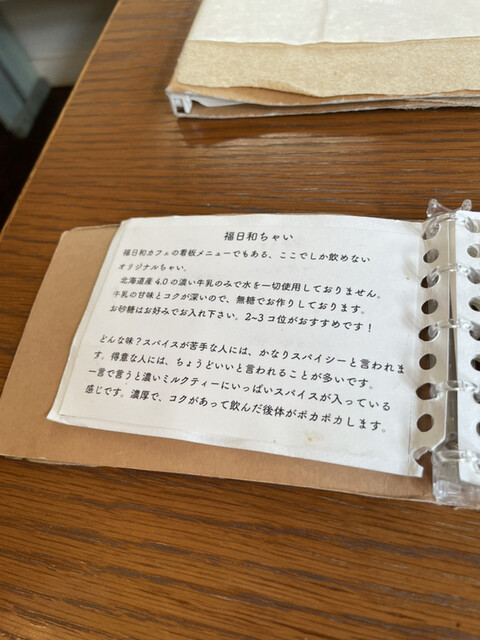 福日和ちゃい
福日和カフェの看板メニューでもある、ここでしか飲めない
オリジナルちゃい。
北海道産 4.0 の濃い牛乳のみで水を一切使用しておりません。
牛乳の甘味とコクが深いので、無糖でお作りしております。
お砂糖はお好みでお入れ下さい。2~3 コ位がおすすめです！
どんな味？スパイスが苦手な人には、かなりスパイシーと言われま
す。得意な人には、ちょうどいいと言われることが多いです。
一言で言うと濃いミルクティーにいっぱいスパイスが入っている
感じです。濃厚で、コクがあって飲んだ後体がポカポカします。